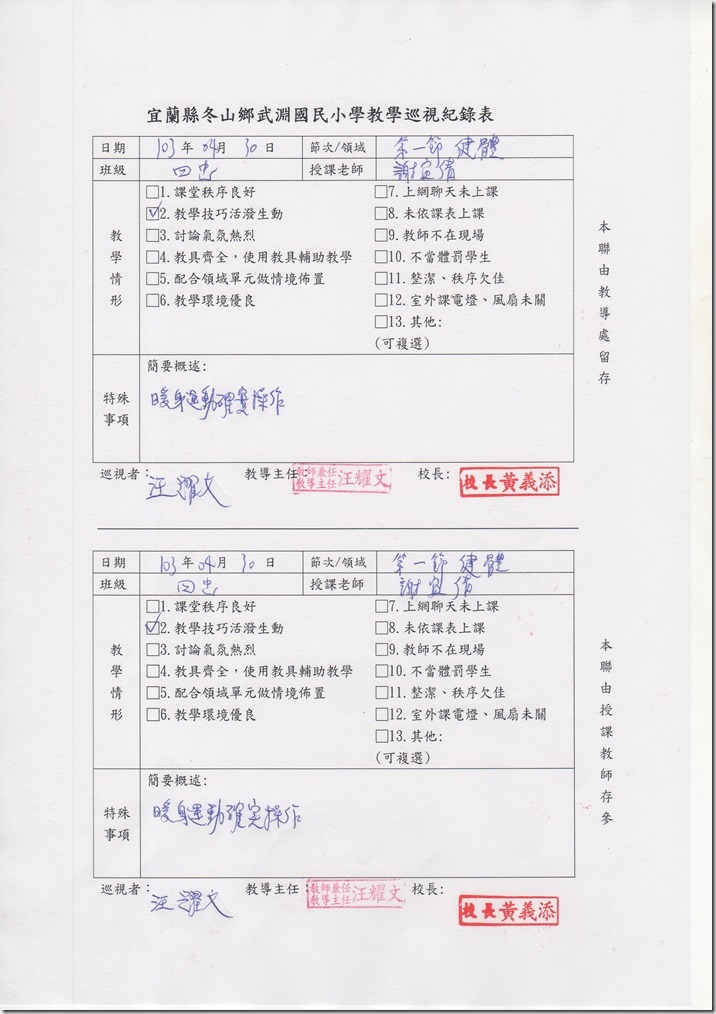 宜蘭縣冬山鄉武淵國民小學教學巡視紀錄表
日期 103年 04月 30日 節次/領域 第一節 健體
班級 四忠 授課老師 謝宜倩
教學情形
☐1.課堂秩序良好 ☐7.上網聊天未上課
☑2.教學技巧活潑生動 ☐8.未依課表上課
☐3.討論氣氛熱烈 ☐9.教師不在現場
☐4.教具齊全,使用教具輔助教學 ☐10.不當體罰學生
☐5.配合領域單元做情境佈置 ☐11.整潔、秩序欠佳
☐6.教學環境優良 ☐12.室外課電燈、風扇未關
☐13.其他:
(可複選)
特殊事項
簡要概述:
暖身運動確實操作
巡視者: 汪耀文 教導主任: 教師兼任教導主任 汪耀文 校長: 校長黃義添
本聯由教導處留存
日期 103年 04月 30日 節次/領域 第一節 健體
班級 四忠 授課老師 謝宜倩
教學情形
☐1.課堂秩序良好 ☐7.上網聊天未上課
☑2.教學技巧活潑生動 ☐8.未依課表上課
☐3.討論氣氛熱烈 ☐9.教師不在現場
☐4.教具齊全,使用教具輔助教學 ☐10.不當體罰學生
☐5.配合領域單元做情境佈置 ☐11.整潔、秩序欠佳
☐6.教學環境優良 ☐12.室外課電燈、風扇未關
☐13.其他:
(可複選)
特殊事項
簡要概述:
暖身運動確實操作
巡視者: 汪耀文 教導主任: 教師兼任教導主任 汪耀文 校長: 校長黃義添
本聯由授課教師存參